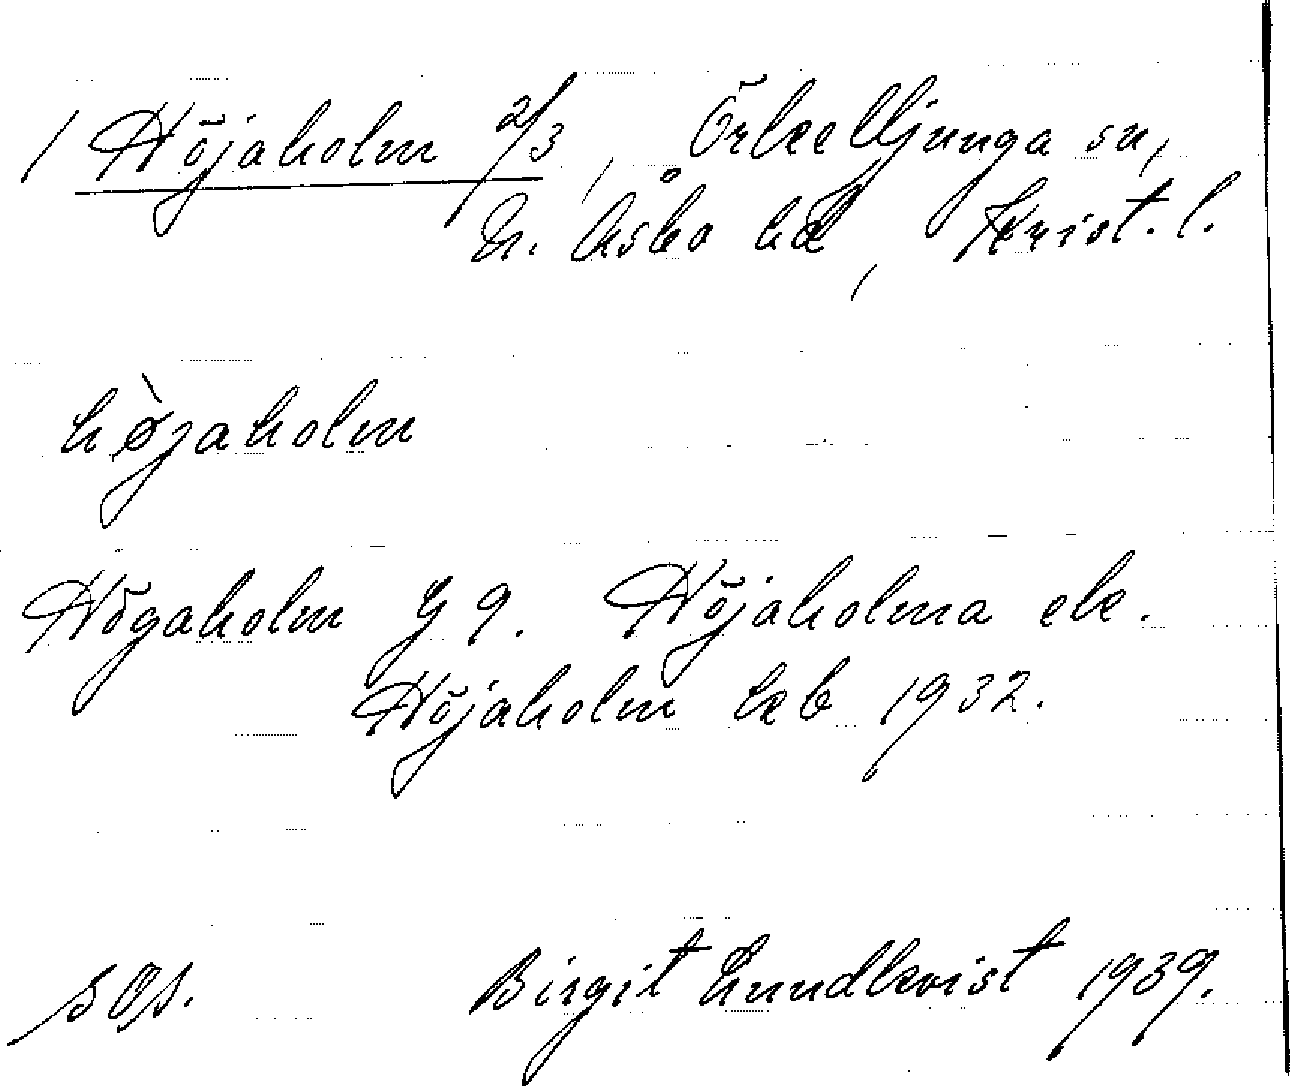 1 Höjaholm 2/3, Örkelljunga sn,
N. Åsbo hd, Krist. l.
hø̀jaholm
Högaholm G 9. Höjaholma ek.
Höjaholm kb 1932.
sOs. Birgit Lundkvist 1939.